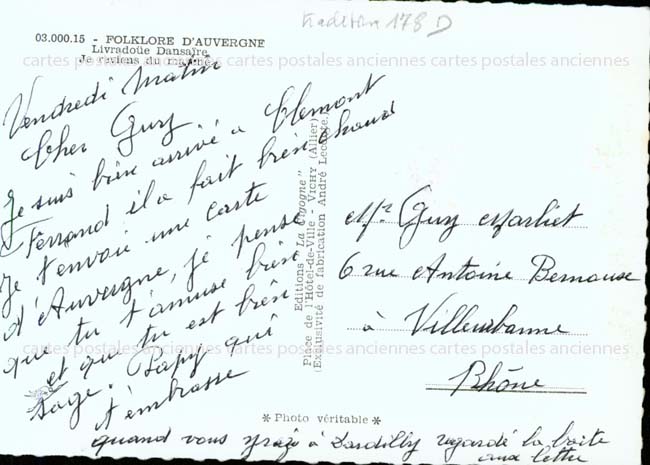 tradition 178 D
03.000.15 - FOLKLORE D'AUVERGNE
Livradoüe Dansaïre
Je reviens du marché
cartes postales anciennes cartes postales anciennes cartes postales anciennes
Vendredi Matin
Cher Guy
Je suis bien arrivé a Clemont
Ferrand il a fait bien chaud
Je t'envoie une carte
d'Auvergne, je pense
que tu t'amuse bien
et que tu est bien
sage. Papy qui
t'embrasse
Editions "La Cigogne"
Place de l'Hôtel-de-Ville - VICHY (Allier)
(Exclusivité de fabrication André Leconte.)
Mr Guy Marliet
6 rue Antoine Bernouse
à Villeurbanne
cartes postales anciennes cartes postales anciennes cartes postales anciennes
Rhône
* Photo véritable *
quand vous à Dardilly regardé la boite
aux lettre